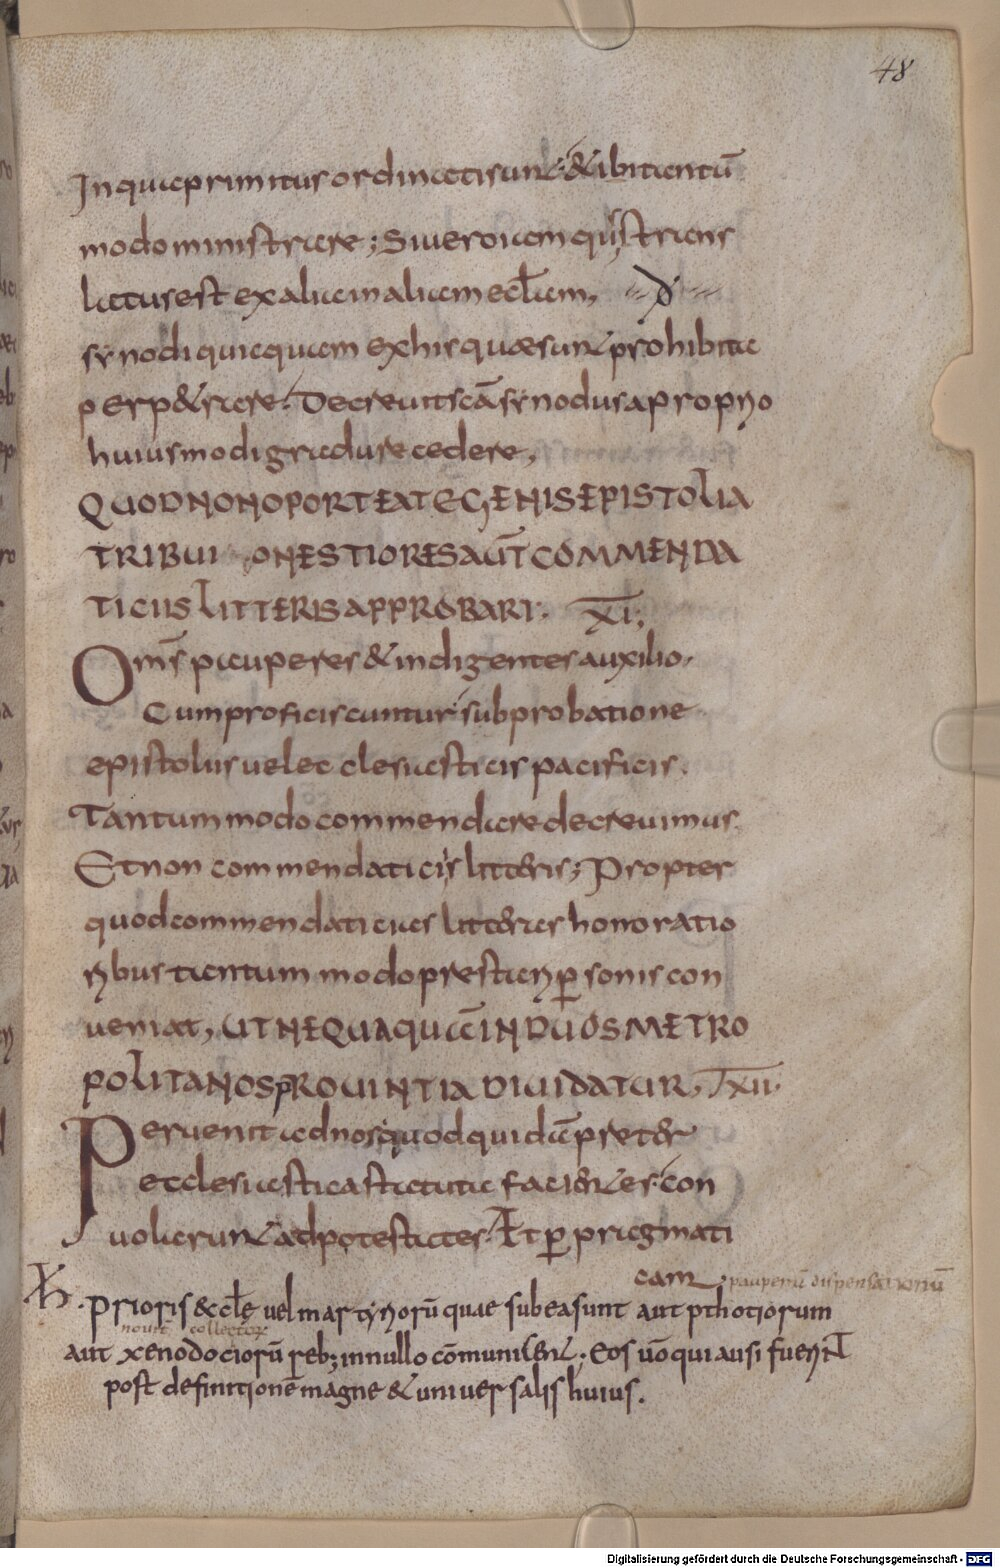 48
In qua primitus ordinati sunt & ibi tantū
modo ministrare; Si uero iam quis trans
latus est ex alia in aliam eclam, đ
synodi quicquam ex his quæ sunt prohibita
perp&rare. Decreuit scā synodus a proprio
huiusmodi gradu recedere,
QUOD NON OPORTEAT EGENIS EPISTOLIA
TRIBUI ONESTIORES AUT COMMENDA
TICIIS LITTERIS APPROBARI. XI;
Oms pauperes & indigentes auxilio,
Cum proficiscuntur sub probatione
epistolis uel ecclesiasticis pacificis.
Tantummodo commendare decreuimus
Et non commendaticiis litteris; Propter
quod commendaticias litteras honoratio
ribus tantummodo prestari personis con
ueniat, UT NEQUAQUĀ IN DUOS METRO
POLITANOS PROUINTIA DIUIDATUR, T XII.
Peruenit ad nos quod quidā preter
ecclesiastica statuta facientes. con
uolarunt ad potestates. Et p pragmati
cam
pauperū dispensationū
Ħ. prioris & ecclę uel martyrorū quae sub ea sunt aut pthotiorum
nouit collector
aut xenodociorū reb; in nullo cōmunicent; Eos uō qui ausi fuerint
post definitionē magne & uniuersalis huius.
Digitalisierung gefördert durch die Deutsche Forschungsgemeinschaft - DFG